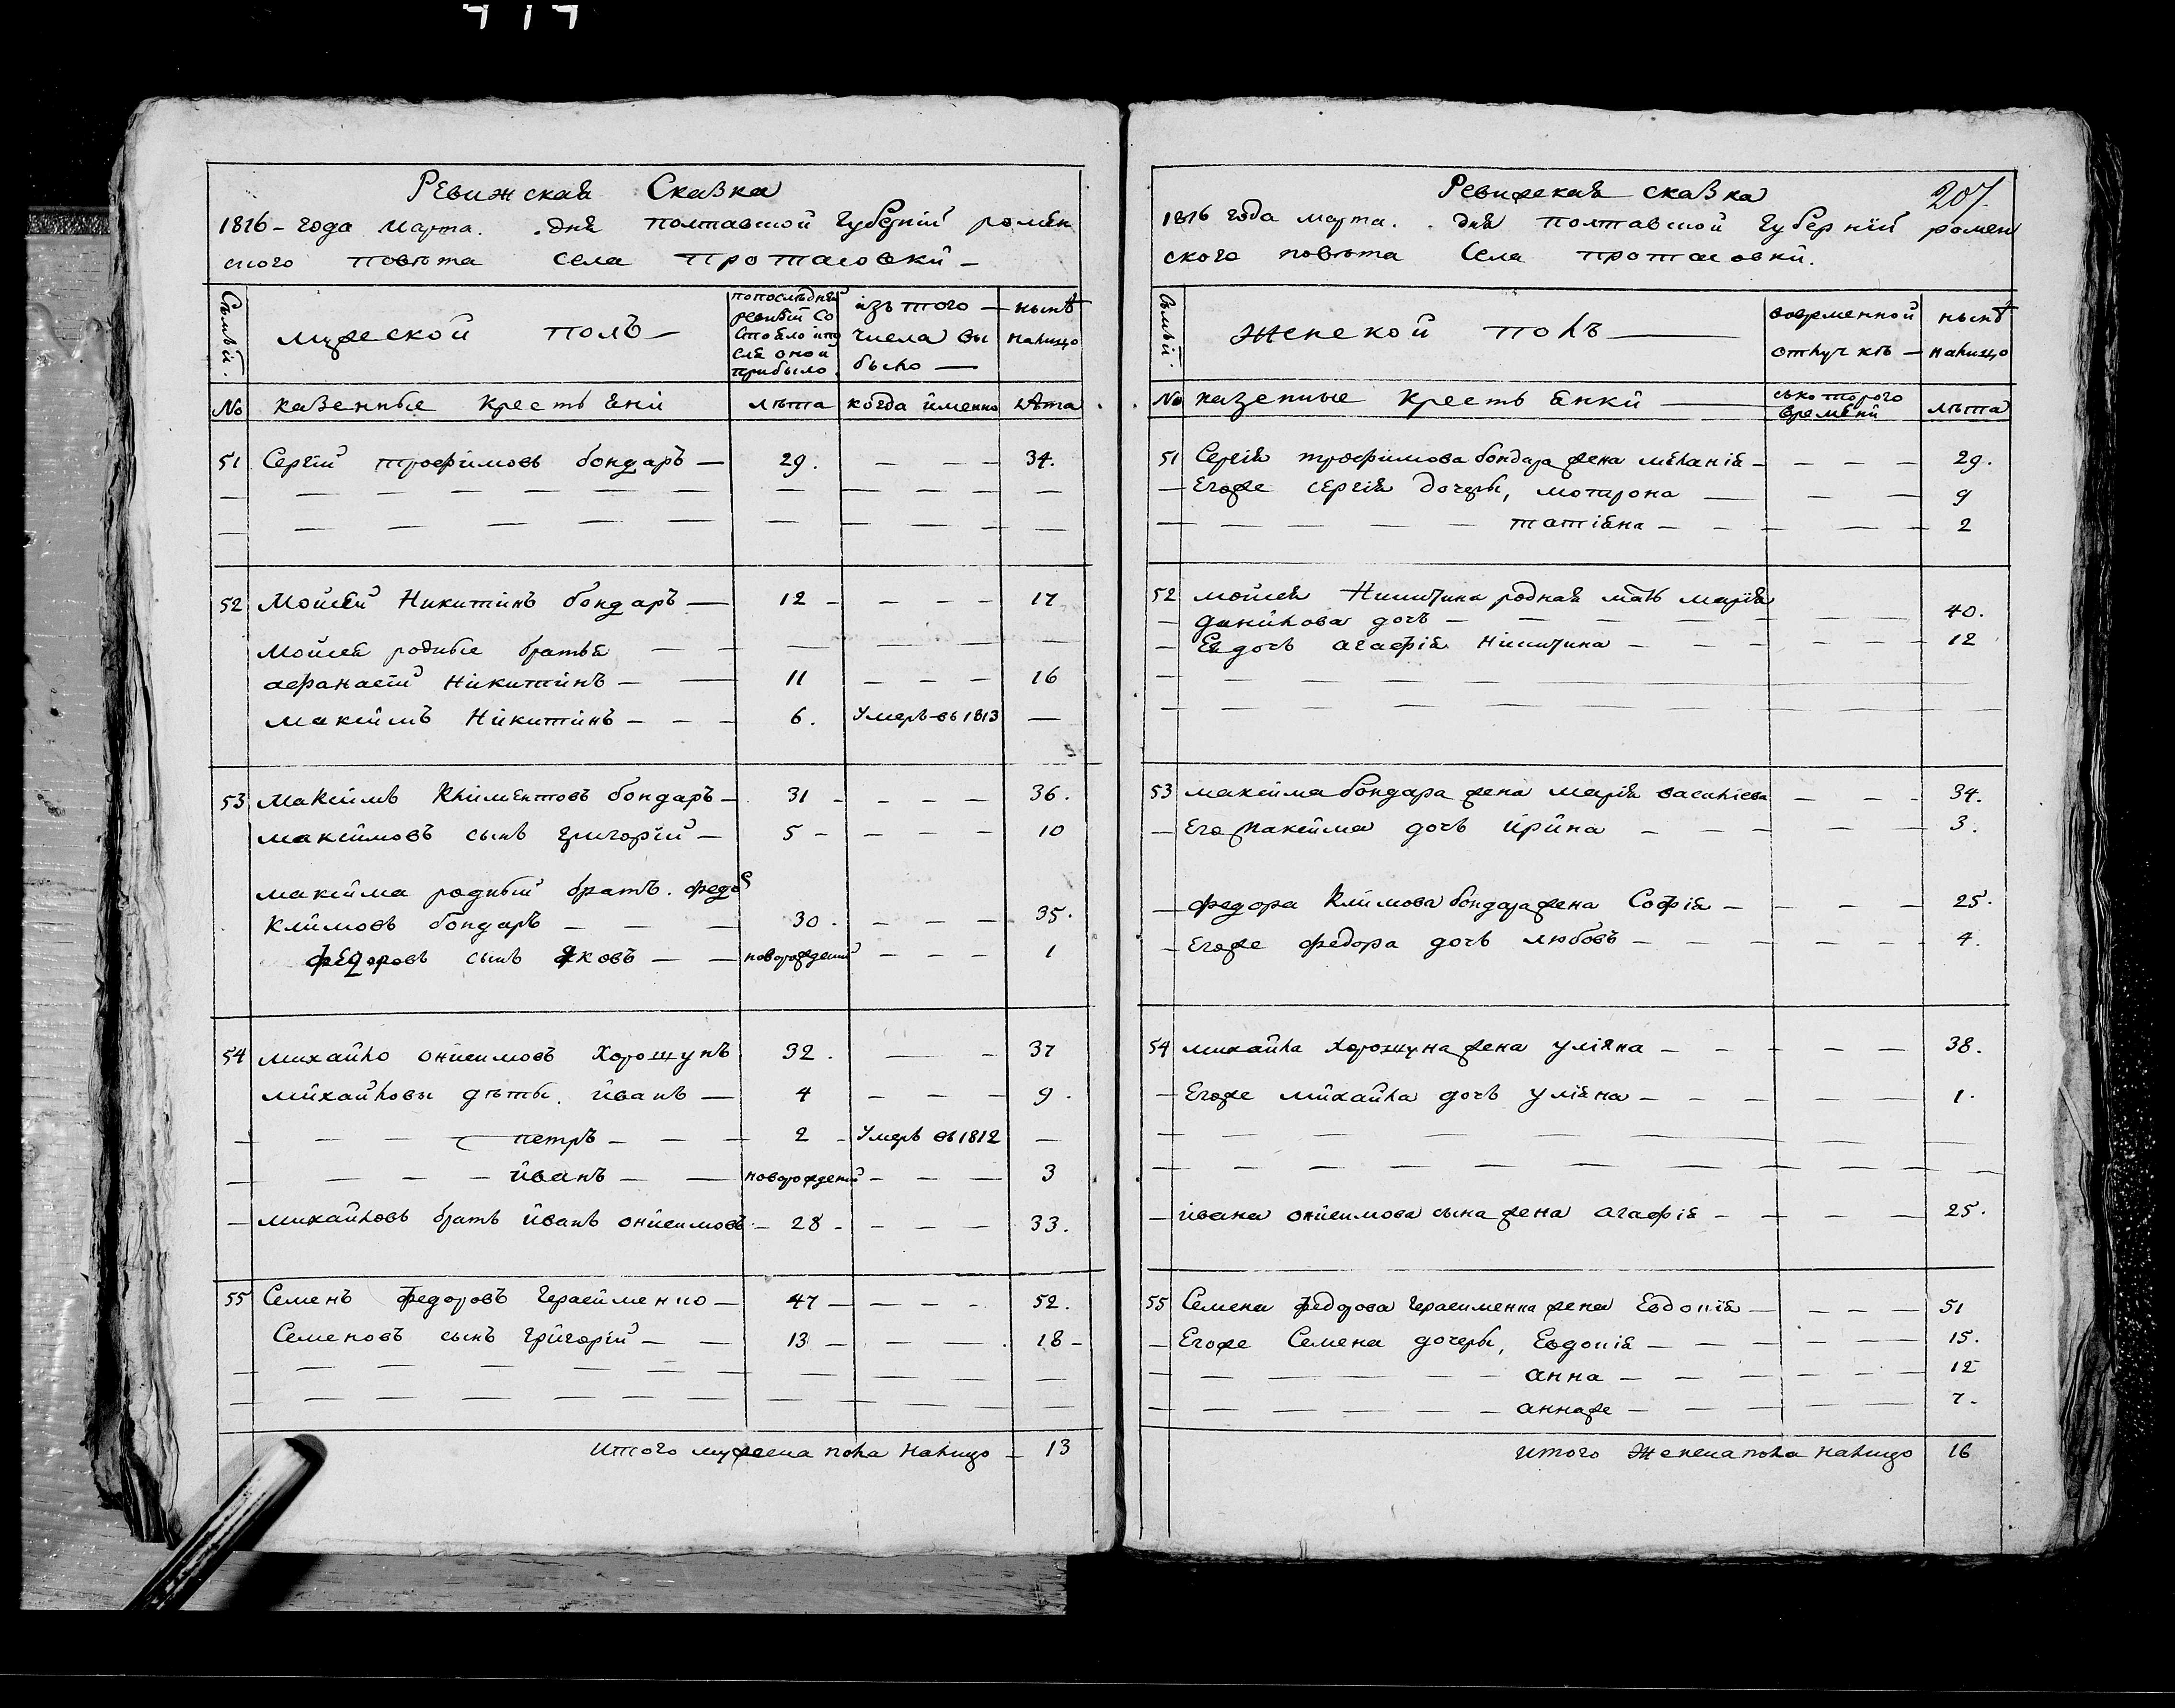 Ревижская Сказка
1816 - года марта . . дня полтавской губерній ромен
ского повѣта села протасовки -
Съмьй.
мужеской полъ -
попослѣдней ревизіи состояло ипо сле оной прибыло
ізъ того числа выбыло -
нынѣ налицо
№ казенные крестьяни
лѣта
когда именно
лѣта
51 Сергій трофимовъ бондаръ — 29. — — — 34.
52 Мойсей Никитинъ бондаръ — 12 - — — — 17
Мойсея родные братья — —
афанасій Никитинъ — — 11 — — — 16
максимъ Никитинъ — — — 6. Умеръ въ 1813 —
53 максимъ Климентовъ бондаръ — 31 — — — 36.
максимовъ сынъ григорій — 5 - — — — 10
максима родный братъ. федоръ
климовъ бондаръ — — — 30. — — — 35.
федоровъ сынъ яковъ — — новорожденій — — — 1
54 михайло онисимовъ Хорошунъ 32. — - 37
михайловы дѣты. иванъ — 4 — — — 9.
— — — петръ — — — 2 - Умеръ въ 1812 —
— — — — иванъ — — новорожденій — — — 3
— михайловъ братъ иванъ онисимовъ - 28 - — — — 33.
55 Семенъ федоровъ герасименко — 47 — — — - 52.
Семеновъ сынъ григорій — — 13 — — — 18 -
итого мужеска пола налицо — 13
Ревижская сказка 207.
1816 года марта . . дня полтавской губерній ромен
ского повѣта Села протасовки.
Съмьй.
Женской полъ —
вовременной отлучкѣ —
нынѣ налицо
№ казенные крестьянки —
съкоторого времени
лѣта
51 Сергія трофимова бондара жена меланія — — — — 29.
— Егоже сергія дочеры, мотрона — — — 9
— — — — — татіяна — — — — 2
52 мойсея Никитина родная мать марія
— данилова дочъ — — — — — — — 40.
— Ея дочъ агафія Никитина — — — — — — 12
53 максима бондара жена марія василіева — — - 34.
— Его максима дочъ ирина — — — — — 3.
— федора климова бондара жена Софія — — — — 25.
— Егоже федора дочъ любовъ — — — — — — 4.
54 михайла хорошуна жена уліяна — — — — — 38.
— Егоже михайла дочъ уліяна — — — — — — 1.
— ивана онисимова сына жена агафія — — — — 25.
55 Семена федорова герасименка жена Евдокія — — — — 51
— Егоже Семена дочеры, Евдокія — — — — — — 15.
— — — — — — анна — — — — — — 12
— — — — — — аннаже — — — — — 7.
итого женска пола налицо 16